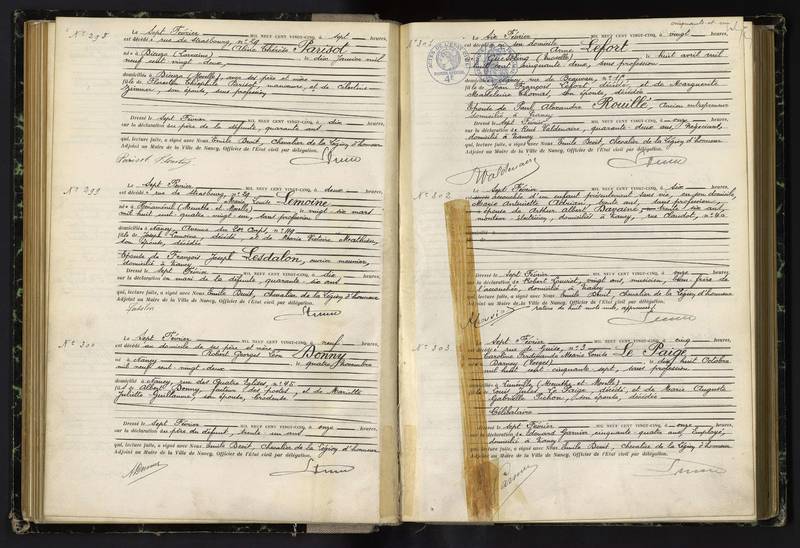 N° 298
Le Sept Février MIL NEUF CENT VINGT-CINQ, à sept heures,
est décédée rue de Strasbourg, n° 29
Thérèse Parisot
née à Bioncourt (Lorraine) le dix Janvier mil
neuf cent vingt deux,
domiciliée à (Moselle), avec ses père et mère
fille de Théophile Parisot, manœuvre, et de Célestine
son épouse, sans profession
Dressé le Sept Février MIL NEUF CENT VINGT-CINQ, à dix heures,
sur la déclaration du père de la défunte, quarante ans
qui, lecture faite, a signé avec Nous Emile Bent, Chevalier de la Légion d'honneur
Adjoint au Maire de la Ville de Nancy, Officier de l'État civil par délégation.
Parisot
N° 299
Le Sept Février MIL NEUF CENT VINGT-CINQ, à deux heures,
est décédée rue de Strasbourg, n° 29
Marie Lemoine
née à (Meurthe et Moselle) le vingt six mars
mil huit cent quatre vingt six, sans profession
domiciliée à Nancy, Avenue du XXe Corps, n° 119
fille de Joseph Lemoine, décédé, et de Marie Victoire Mathieu,
son épouse, décédée
Epouse de François Joseph Lesdalon, ouvrier meunier,
domicilié à Nancy
Dressé le Sept Février MIL NEUF CENT VINGT-CINQ, à dix heures,
sur la déclaration du mari de la défunte, quarante six ans
qui, lecture faite, a signé avec Nous Emile Bent, Chevalier de la Légion d'honneur
Adjoint au Maire de la Ville de Nancy, Officier de l'État civil par délégation.
N° 300
Le Sept Février MIL NEUF CENT VINGT-CINQ, à neuf heures,
est décédé au domicile de ses père et mère
Robert Georges Léon Bonny
né à Nancy le quatre Novembre
mil neuf cent vingt deux
domicilié à Nancy, rue des Quatre Eglises, n° 45
fils de Albert Bonny, facteur des postes, et de Mariette
Juliette Guillaume, son épouse, brodeuse
Dressé le Sept Février MIL NEUF CENT VINGT-CINQ, à onze heures,
sur la déclaration du père du défunt, trente un ans
qui, lecture faite, a signé avec Nous Emile Bent, Chevalier de la Légion d'honneur
Adjoint au Maire de la Ville de Nancy, Officier de l'État civil par délégation.
N° 301
Le Six Février MIL NEUF CENT VINGT-CINQ, à vingt heures,
est décédée en son domicile
Anne Lefort
née à (Moselle) le huit avril mil
huit cent cinquante deux, sans profession
Nancy, rue de Beauvau, n° 15
fille de Jean François Lefort, décédé, et de Marguerite
Madeleine Thomas, son épouse, décédée
Epouse de Paul Alexandre Rouillé, Ancien entrepreneur
domicilié à Nancy
Dressé le Sept Février MIL NEUF CENT VINGT-CINQ, à onze heures,
sur la déclaration de René Valdenaire, quarante deux ans, Négociant,
domicilié à Nancy
qui, lecture faite, a signé avec Nous Emile Bent, Chevalier de la Légion d'honneur
Adjoint au Maire de la Ville de Nancy, Officier de l'État civil par délégation.
Valdenaire
N° 302
Le Sept Février MIL NEUF CENT VINGT-CINQ, à six heures,
est accouchée d'un enfant présentement sans vie, en son domicile,
Marie Antoinette trente ans, sans profession,
épouse de Arthur Albert Bavoine, trente six ans,
monteur électricien, domiciliés à Nancy, rue Claudot, n° 40
Dressé le Sept Février MIL NEUF CENT VINGT-CINQ, à onze heures,
sur la déclaration de Robert Louviot, vingt ans, musicien, beau-frère de
l'accouchée, domicilié à Nancy
qui, lecture faite, a signé avec Nous Emile Bent, Chevalier de la Légion d'honneur
Adjoint au Maire de la Ville de Nancy, Officier de l'État civil par délégation.
rature de huit mots nuls, approuvée
N° 303
Le Sept Février MIL NEUF CENT VINGT-CINQ, à cinq heures,
est décédée rue de Guise, n° 3
Caroline Ferdinande Marie Louise Le Paige
née à Darney (Vosges) le dix huit Octobre
mil huit cent cinquante sept, sans profession
domiciliée à Lunéville (Meurthe et Moselle)
fille de Louis Jules Le Paige, décédé, et de Marie Auguste
Gabrielle Pichon, son épouse, décédée
Célibataire
Dressé le Sept Février MIL NEUF CENT VINGT-CINQ, à onze heures,
sur la déclaration de Edouard Garnier cinquante quatre ans, Employé,
domicilié à Nancy
qui, lecture faite, a signé avec Nous Emile Bent, Chevalier de la Légion d'honneur
Adjoint au Maire de la Ville de Nancy, Officier de l'État civil par délégation.
Garnier